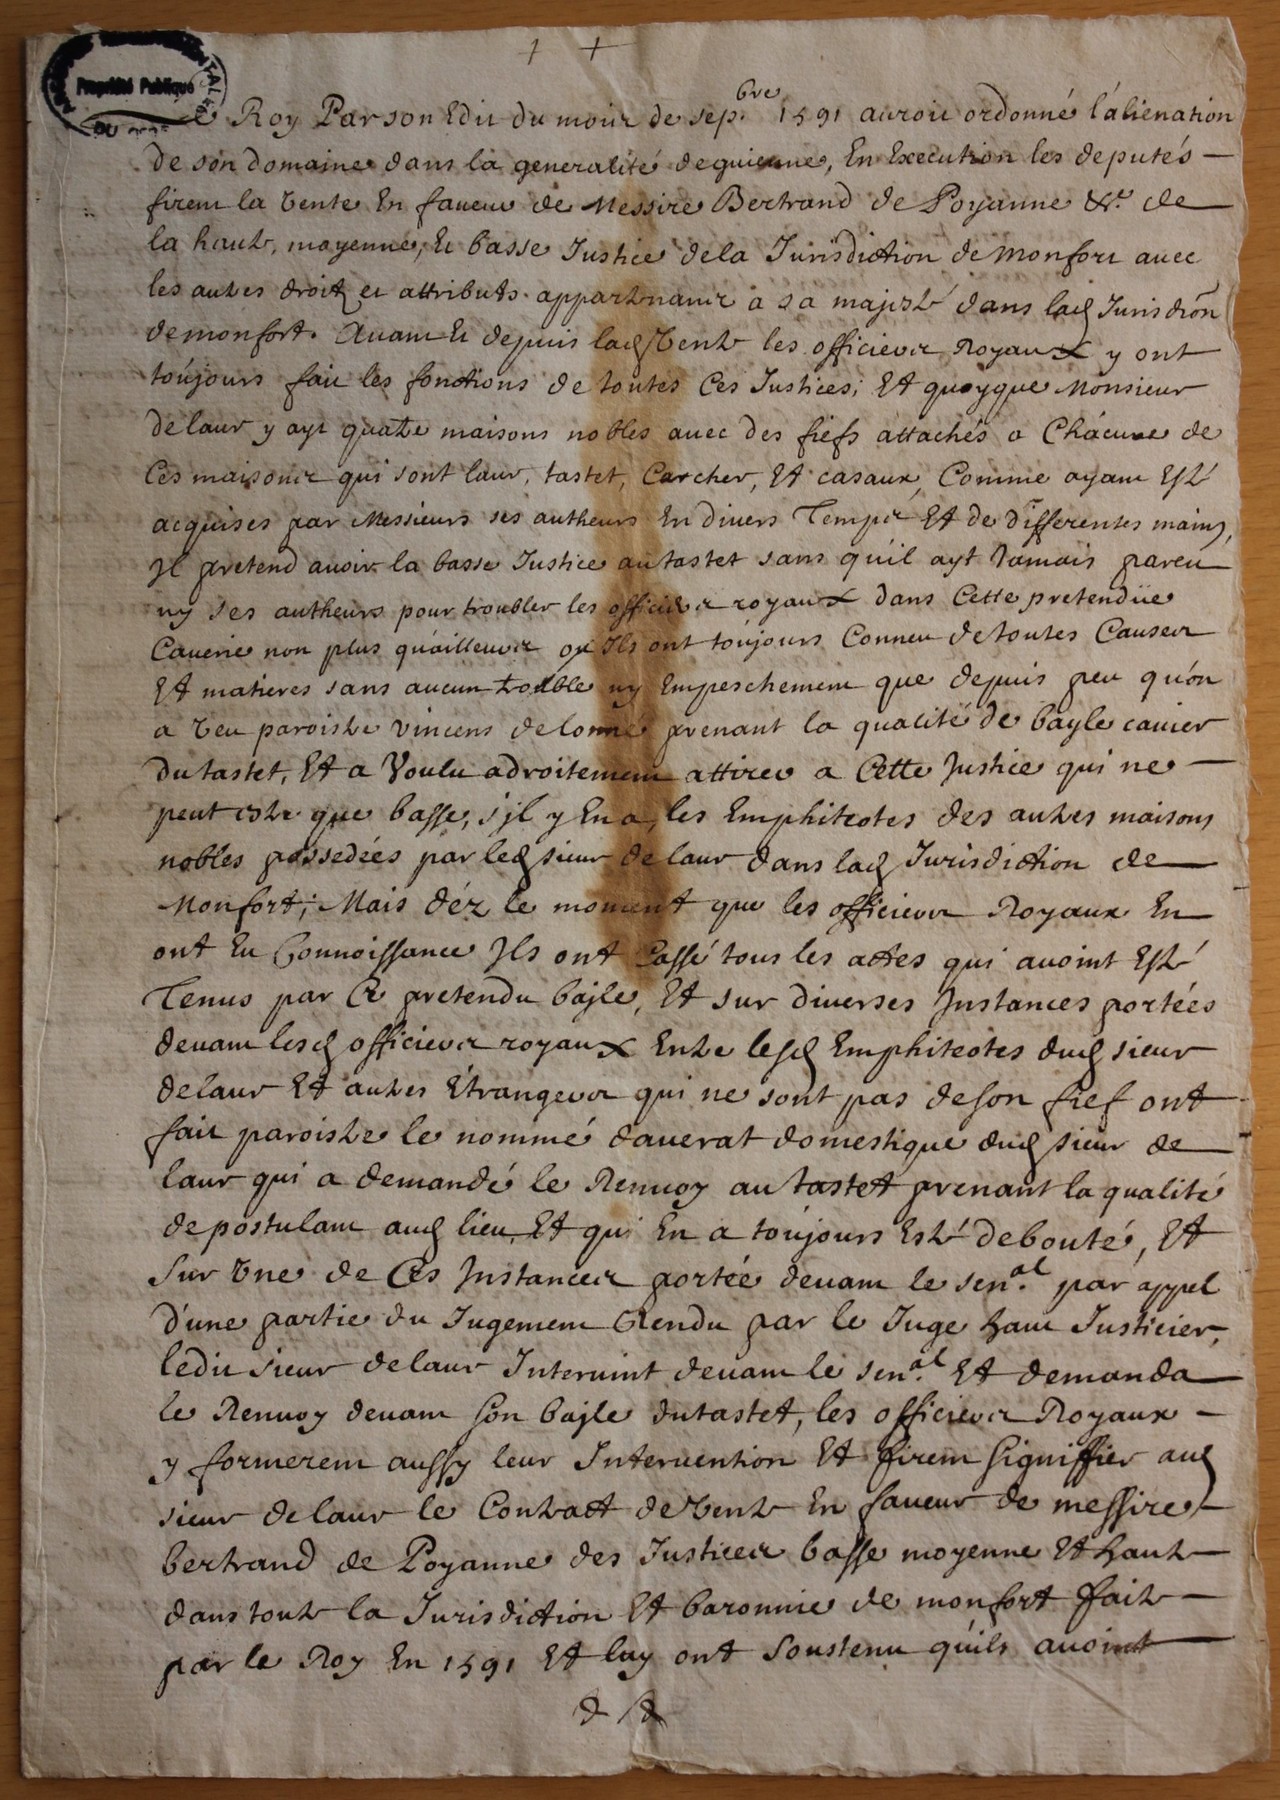 Propriété Publique
Le Roy Par son Edit du mois de sepbre 1591 auroit ordonné l'aliénation
de son domaine dans la generalité de guienne, En Execution les deputés
firent la vente En faveur de Messire Bertrand de Poyanne &c. de
la haute, moyenne, Et basse Justice de la Jurisdiction de Monfort avec
les autres droits et attributs appartenants a sa majesté dans lad. Jurisdi͠on
de monfort. Avant Et depuis lad. Vente les officiers Royaux y ont
toújours fait les fonctions de toutes Ces Justices; Et quoyque Monsieur
de laur y ayt quatre maisons nobles avec des fiefs attachés a Chácune de
Ces maisons qui sont laur, tastet, Carcher, Et casaux, Comme ayant Esté
acquises par Messieurs ses autheurs En divers Temps Et de differentes mains,
Il pretend avoir la basse Justice au tastet sans qu'il ayt Jamais pareu
ny ses autheurs pour troubler les officiers royaux dans Cette pretendüe
Caverie non plus qu'ailleurs ou Ils ont toújours Conneu de toutes Causes
Et matieres sans aucun trouble ny Empeschement que depuis peu qu'on
a veu paroistre vincens delonne prenant la qualité de bayle cavier
du tastet, Et a Voulu adroitement attirer a Cette Justice qui ne
peut estre que basse, s'il y En a, les Emphiteotes des autres maisons
nobles possedées par led. sieur de laur dans lad. Jurisdiction de
Monfort; Mais déz le moment que les officiers Royaux En
ont Eu Connoissance Ils ont Cassé tous les actes qui avoint Esté
Tenus par Ce pretendu bajle, Et sur diverses Instances portées
devant lesd. officiers royaux Entre lesd. Emphiteotes dud. sieur
de laur Et autres Étrangers qui ne sont pas de son fief ont
fait paroistre le nommé daverat domestique dud. sieur de
laur qui a demandé le Renvoy au tastet prenant la qualité
de postulant aud. lieu, Et qui En a toújours Esté debouté, Et
Sur Vne de Ces Instances portée devant le sen.al par appel
d'une partie du Jugement Rendu par le Juge haut Justicier,
ledit sieur de laur Intervint devant le sen.al Et demanda
le Renvoy devant Son bajle du tastet, les officiers Royaux
y formerent aussy leur Intervention Et firent Signiffier aud.
sieur de laur le Contract de Vente En faveur de messire
bertrand de Poyanne des Justices basse moyenne Et haute
dans toute la Jurisdiction Et baronnie de monfort faite
par le Roy En 1591 Et luy ont Soustenu qu'ils avoint